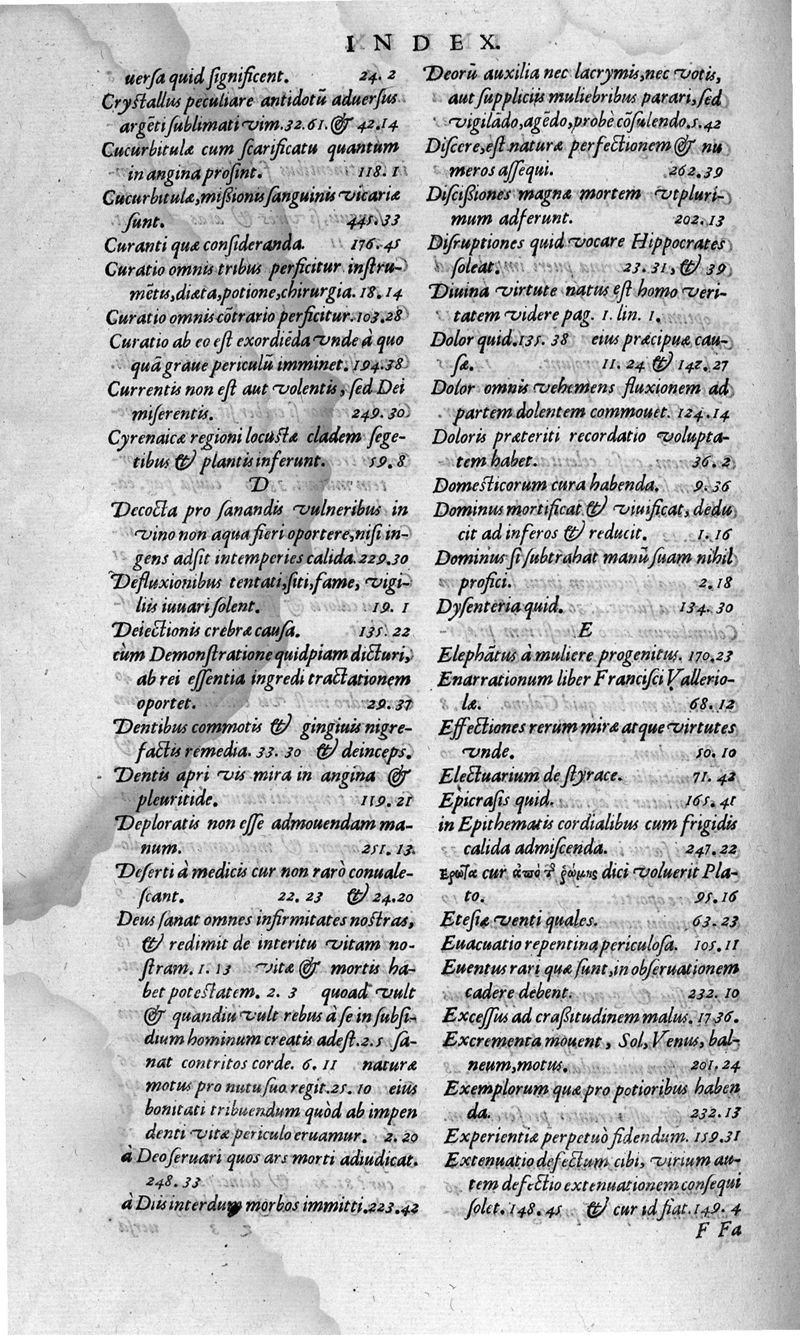 INDEX.
uersa quid significent. 24. 2
Crystallus peculiare antidotū aduersus
argēti sublimati vim. 32. 61. & 42. 14
Cucurbitulæ cum scarificatu quantum
in angina prosint. 118. 1
Cucurbitulæ, missionis sanguinis vicariæ
sunt. 445. 33
Curanti quæ consideranda. 176. 45
Curatio omnis tribus perficitur instru-
mētis, diæta, potione, chirurgia. 18. 14
Curatio omnis cōtrario perficitur. 103. 28
Curatio ab eo est exordiēda vnde à quo
quā graue periculū imminet. 194. 38
Currentis non est aut volentis, sed Dei
miserentis. 249. 30
Cyrenaicæ regioni locustæ cladem sege-
tibus & plantis inferunt. 59. 8
D
Decocta pro sanandis vulneribus in
vino non aqua fieri oportere, nisi in-
gens adsit intemperies calida. 229. 30
Defluxionibus tentati, siti, fame, vigi-
liis iuuari solent. 19. 1
Deiectionis crebræ causa. 135. 22
cùm Demonstratione quidpiam dicturi,
ab rei essentia ingredi tractationem
oportet. 29. 37
Dentibus commotis & gingiuis nigre-
factis remedia. 33. 30 & deinceps.
Dentis apri vis mira in angina &
pleuritide. 119. 21
Deploratis non esse admouendam ma-
num. 251. 13.
Deserti à medicis cur non rarò conuale-
scant. 22. 23 & 24. 20
Deus sanat omnes infirmitates nostras,
& redimit de interitu vitam no-
stram. 1. 13 vitæ & mortis ha-
bet potestatem. 2. 3 quoad vult
& quandiu vult rebus à se in subsi-
dium hominum creatis adest. 2. 5 sa-
nat contritos corde. 6. 11 naturæ
motus pro nutu suo regit. 25. 10 eius
bonitati tribuendum quòd ab impen
denti vitæ periculo eruamur. 2. 20
à Deo seruari quos ars morti adiudicat.
248. 33
à Diis interdum morbos immitti. 223. 42
Deorū auxilia nec lacrymis, nec votis,
aut suppliciis muliebribus parari, sed
vigilādo, agēdo, probè cōsulendo. 5. 42
Discere, est naturæ perfectionem & nu
meros assequi. 262. 39
Discissiones magnæ mortem vtpluri-
mum adferunt. 202. 13
Disruptiones quid vocare Hippocrates
soleat. 23. 31, & 39
Diuina virtute natus est homo veri-
tatem videre pag. 1. lin. 1.
Dolor quid. 135. 38 eius præcipuæ cau-
sæ. 11. 24 & 142. 27
Dolor omnis vehemens fluxionem ad
partem dolentem commouet. 124. 14
Doloris præteriti recordatio volupta-
tem habet. 36. 2
Domesticorum cura habenda. 9. 36
Dominus mortificat & viuificat, dedu
cit ad inferos & reducit. 1. 16
Dominus si subtrahat manū suam nihil
profici. 2. 18
Dysenteria quid. 134. 30
E
Elephātus à muliere progenitus. 170. 23
Enarrationum liber Francisci Vallerio-
læ. 68. 12
Effectiones rerum miræ atque virtutes
vnde. 50. 10
Electuarium de styrace. 71. 42
Epicrasis quid. 165. 41
in Epithematis cordialibus cum frigidis
calida admiscenda. 247. 22
cur ἀπὸ ῥώμης dici voluerit Pla-
to. 95. 16
Etesiæ venti quales. 63. 23
Euacuatio repentina periculosa. 105. 11
Euentus rari quæ sunt, in obseruationem
cadere debent. 232. 10
Excessus ad crassitudinem malus. 17 36.
Excrementa mouent, Sol, Venus, bal-
neum, motus. 201. 24
Exemplorum quæ pro potioribus haben
da. 232. 13
Experientiæ perpetuò fidendum. 159. 31
Extenuatio defectum cibi, virium au-
tem defectio extenuationem consequi
solet. 148. 45 & cur id fiat. 149. 4
F Fa